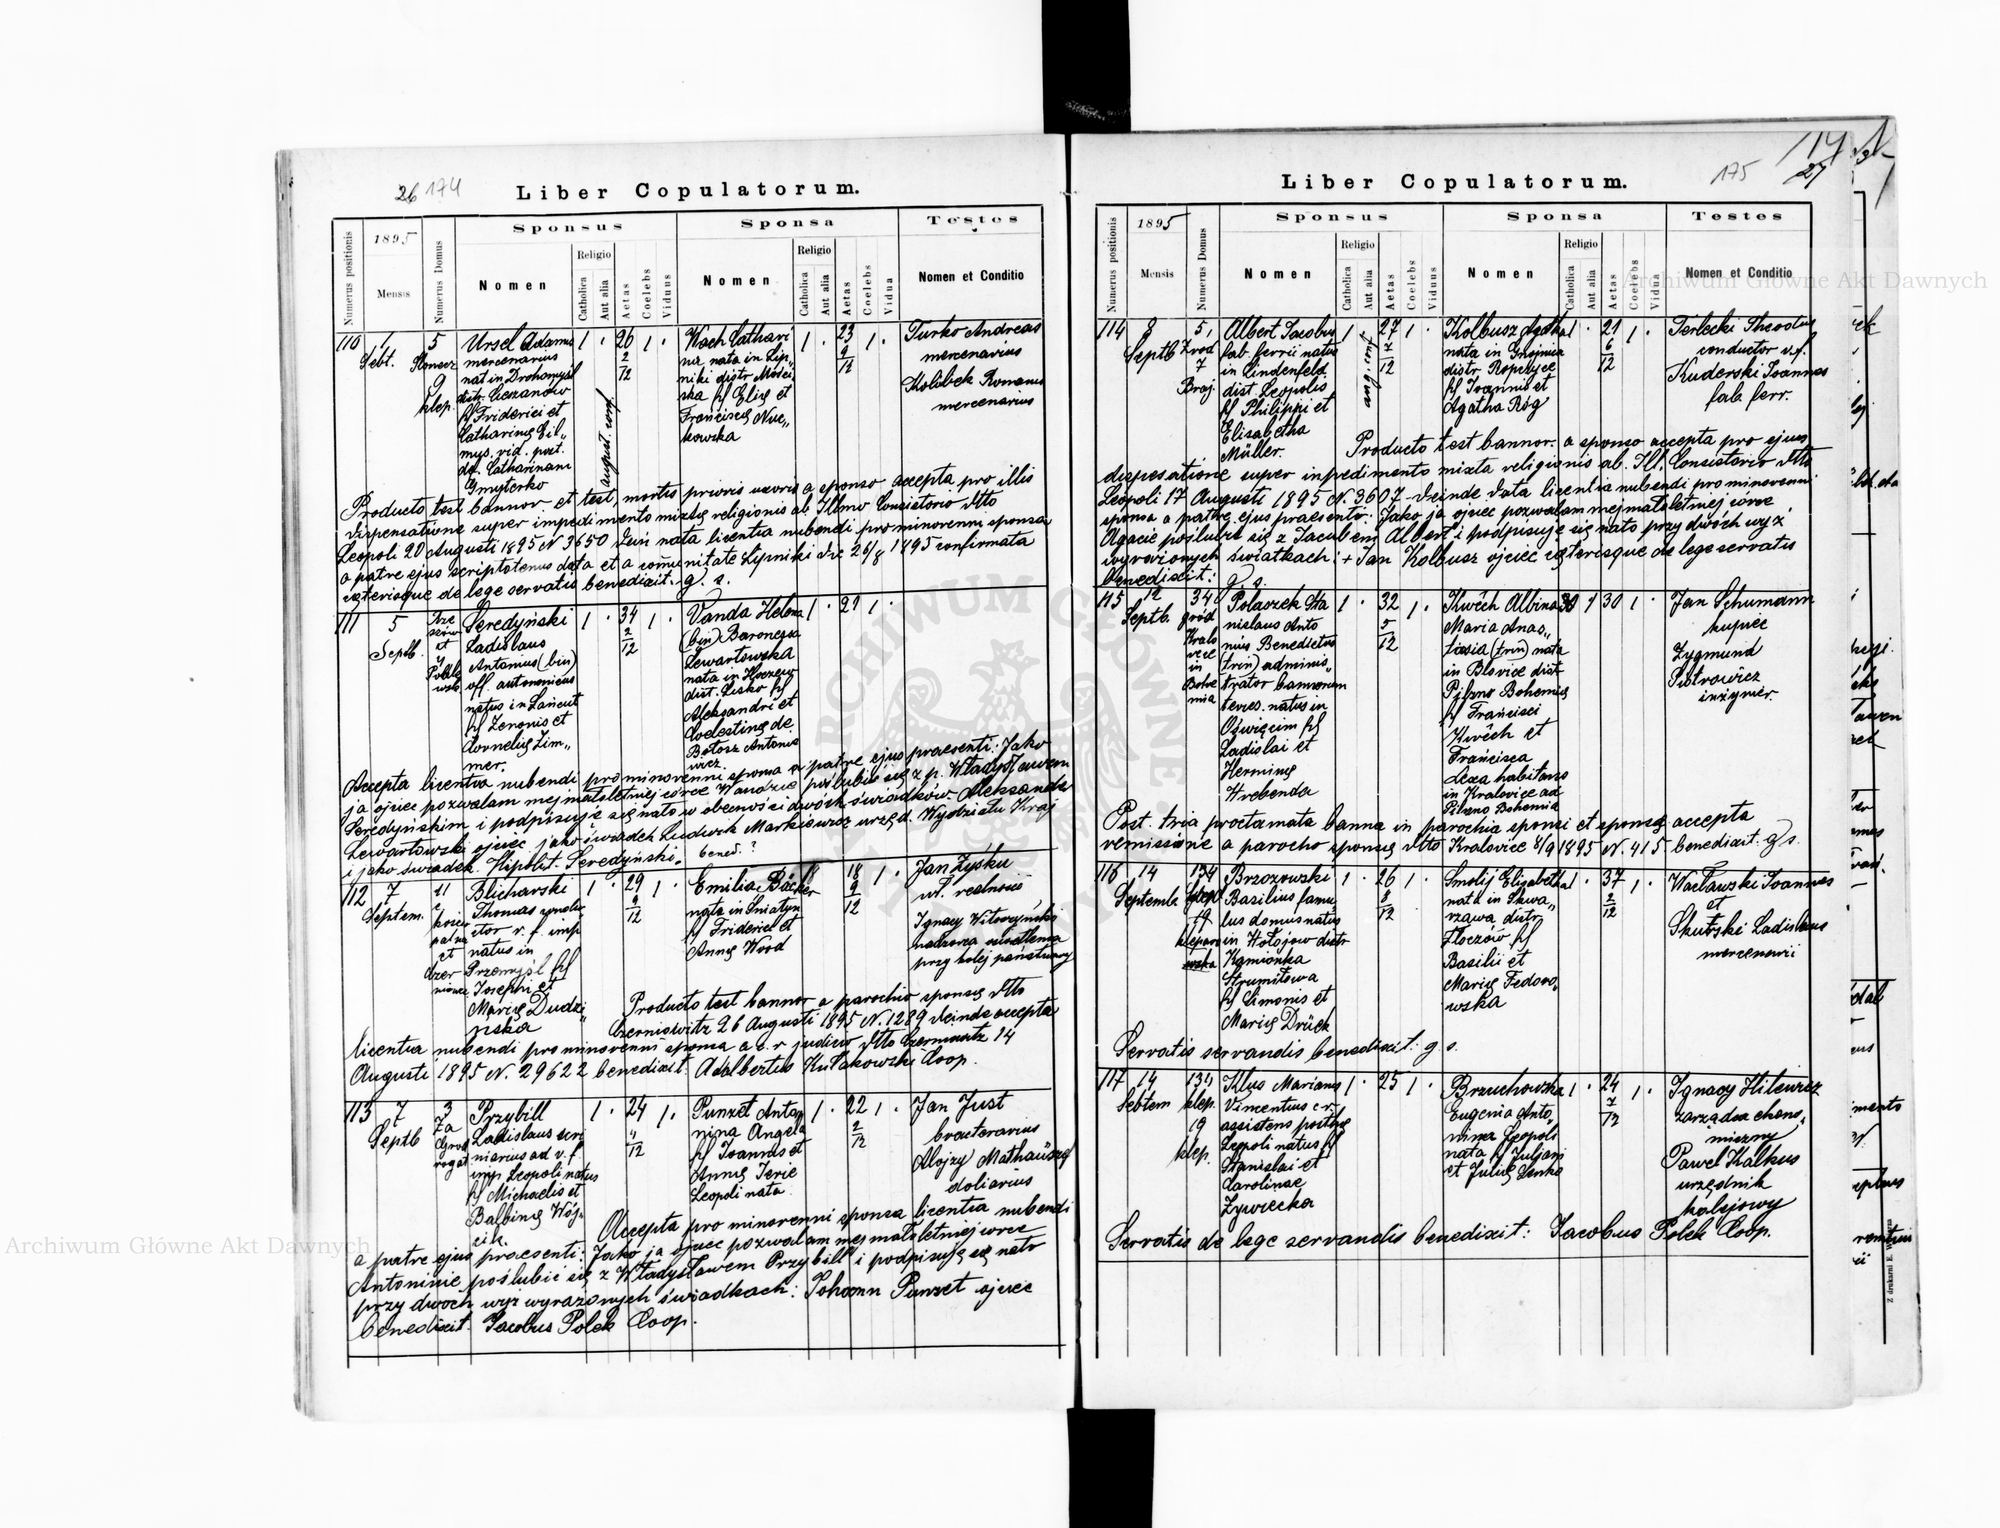 26 174
Liber Copulatorum.
Numerus positionis
1895
Mensis
Numerus Domus
Sponsus
Nomen
Religio
Catholica
Aut alia
Aetas
Coelebs
Viduus
Sponsa
Nomen
Religio
Catholica
Aut alia
Aetas
Coelebs
Vidua
Testes
Nomen et Conditio
110
1
Sebt.
5
9
klep.
Ursel Adamus
mercenarius
nat in Drohomyśl
distr. Cieszanów
f/f Friderici et
Catharinę Gil„
mys. vid. post.
df. Catharinam
Gmyterko
1 .
august. conf.
26
2
12
1 .
Koch Cathari
na nata in Lip„
niki distr Mości
ska f/f Elię et
Franciscę Nuc„
kowska
1 .
23
9
12
1 .
Turko Andreas
mercenarius
Kolóbek Romanus
mercenarius
Producto test bannor. et test, mortis prioris uxoris a sponso accepta pro illis
dispensatione super impedimento mixtę religionis ab Illmo Consistorio dtto
Leopoli 20 Augusti 1895 N 3650 dein nata licentia nubendi pro minorenni sponsa
a patre ejus scriptotenus data et a comunitate Lipniki dto 26/8 1895 confirmata
cęterisque de lege servatis benedixit. g. s.
111
5
Septb.
et
Seredyński
Ladislaus
Antonius (bin)
off. autonomicus
natus in Łańcut
f/f Zenonis et
Cornelię Zim„
mer.
1 .
34
2
12
1 .
Vanda Helena
(bin) Baronessa
Lewartowska
nata in Hoczew
dist. Lisko f/f
Aleksandri et
Coelestinę de
Botosz Antonie
wicz.
1 .
21
1 .
Accepta licentia nubendi pro minorenni sponsa a patre ejus praesenti: Jako
ja ojciec pozwalam mej małoletniej córce Wandzie poślubić się z p. Władysławem
Seredyńskim i podpisuję się na to w obecności dwóch świadków Aleksander
Lewartowski ojciec, jako świadek Ludwik Markiewicz urzęd. Wydziału Kraj
i jako świadek Hipolit Seredyński. bened. ?
112
7
Septem.
11
et
Czer
niowce
Blicharski
Thomas condu
ctor v. f. imp
natus in
Przemyśl f/f
Josephi et
Marię Dudzi„
ńska
1 .
29
9
12
1 .
Emilia Bäcker
nata in Śniatyn
f/f Friderici et
Annę Wood
18
18
9
12
1 .
Jan Zyśku
wł. realności
Ignacy Witoszyński
nadzorca
przy kolej państwowej
Producto test bannor a parochia sponsę dtto
Czerniowitz 26 Augusti 1895 N. 1289 deinde accepta
licentia nubendi pro minorenni sponsa a c. r judicio dtto Czernowitz 14
Augusti 1895 N. 29622 benedixit Adalbertus Kułakowski Coop.
113
7
Septb
3
7a
Przybill
Ladislaus scri
niarius ad v. f.
imp. Leopoli natus
f/f Michaelis et
Balbinę Wój„
cik.
1 .
24
4
12
1 .
Punzet Anto
nina Angela
f/f Joannis et
Annę Jerie
Leopoli nata
1 .
22
2
12
1 .
Jan Just
bracteravius
Alojzy Mathäuszy
doliarius
Accepta pro minorenni sponsa licentia nubendi
a patre ejus praesenti: Jako ja ojciec pozwalam mej małoletniej córce
Antoninie poślubić się z Władysławem Przybill i podpisuję się na to
przy dwóch wyż wyrażonych świadkach: Johann Punzet ojciec
benedixit. Jacobus Polek Coop.
Liber Copulatorum.
175
27
Numerus positionis
1895
Mensis
Numerus Domus
Sponsus
Nomen
Religio
Catholica
Aut alia
Aetas
Coelebs
Viduus
Sponsa
Nomen
Religio
Catholica
Aut alia
Aetas
Coelebs
Vidua
Testes
Nomen et Conditio
114
8
Septb
5,
7
Braj.
Albert Jacobus
fab. ferrii natus
in Lindenfeld
dist. Leopolis
f/f Philippi et
Elisabetha
Müller.
1 .
aug. conf
27
7
12
1 .
Kolbusz Agatha
nata in Gnojnica
distr Ropczyce
f/f Joannis et
Agatha Róg
1 .
21
6
12
1 .
Terlecki Theodus
conductor v. f.
Kuderski Joannes
fab. ferr.
Producto test bannor. a sponso accepta pro ejus
dispensatione super inpedimento mixta religionis ab. Ill. Consistorio dtto
Leopoli 17 Augusti 1895 N. 3607 deinde data licentia nubendi pro minorenni
sponsa a patre ejus praesente: Jako ja ojciec pozwalam mej małoletniej córce
Agacie poślubić się z Jacobem Albert i podpisuję się na to przy dwóch wyż
wyrażonych świadkach: + Jan Kolbusz ojciec cęterisque de lege servatis
benedixit: g. s.
115
12
Septb.
34
gród
Kralo
vece
in
Bohe
mia
Polaczek Sta
nislaus Anto
nius Benedictus
(trin) adminis„
trator bannorum
natus in
Oświęcim f/f
Ladislai et
Herminę
Hrebenda
1 .
32
5
12
1 .
Kwěch Albina
Maria Anas„
tasia (trin) nata
in Blovice dist.
Pilzno Bohemię
f/f Francisci
Kwěch et
Francisca
Lexa habitans
in Kralovice ad
Pilzno Bohemia
30
30
1 .
Jan Schumann
kupiec
Zygmund
Piotrowicz
inżynier.
Post. tria proclamata banna in parochia sponsi et sponsę accepta
remissione a parocho sponsę dtto Kralovice 8/9 1895 N. 415 benedixit. g s.
116
14
Septemb
134
19
Brzozowski
Basilius famu
lus domus natus
in Hołojow distr
Kamionka
Strumiłowa
f/f Simonis et
Marię Drück
1 .
26
8
12
1 .
Smolij Elisabetha
nata in Skwa„
rzawa distr
Złoczów f/f
Basilii et
Marię Fedoro„
wska
1 .
37
2
12
1 .
Wacławski Joannes
et
Skulski Ladislaus
mercenarii
Servatis servandis benedixit: g s.
117
14
Sebtem
134
klep.
19
klep.
Klus Marianus
Vincentius c. r.
assistens postęę
Leopoli natus f/f
Stanislai et
Carolinae
Żywiecka
1 .
25
1 .
Brzuchowska
Eugenia Anto„
nina Leopoli
nata f/f Juljani
et Julię Lenko
1 .
24
7
12
1 .
Ignacy Hilewicz
zarządca ekono„
miczny
Paweł Kalkus
urzędnik
kolejowy
Servatis de lege servandis benedixit: Jacobus Polek Coop.
Archiwum Główne Akt Dawnych
Archiwum Główne Akt Dawnych
ARCHIWUM GŁÓWNE
Z drukarni E.